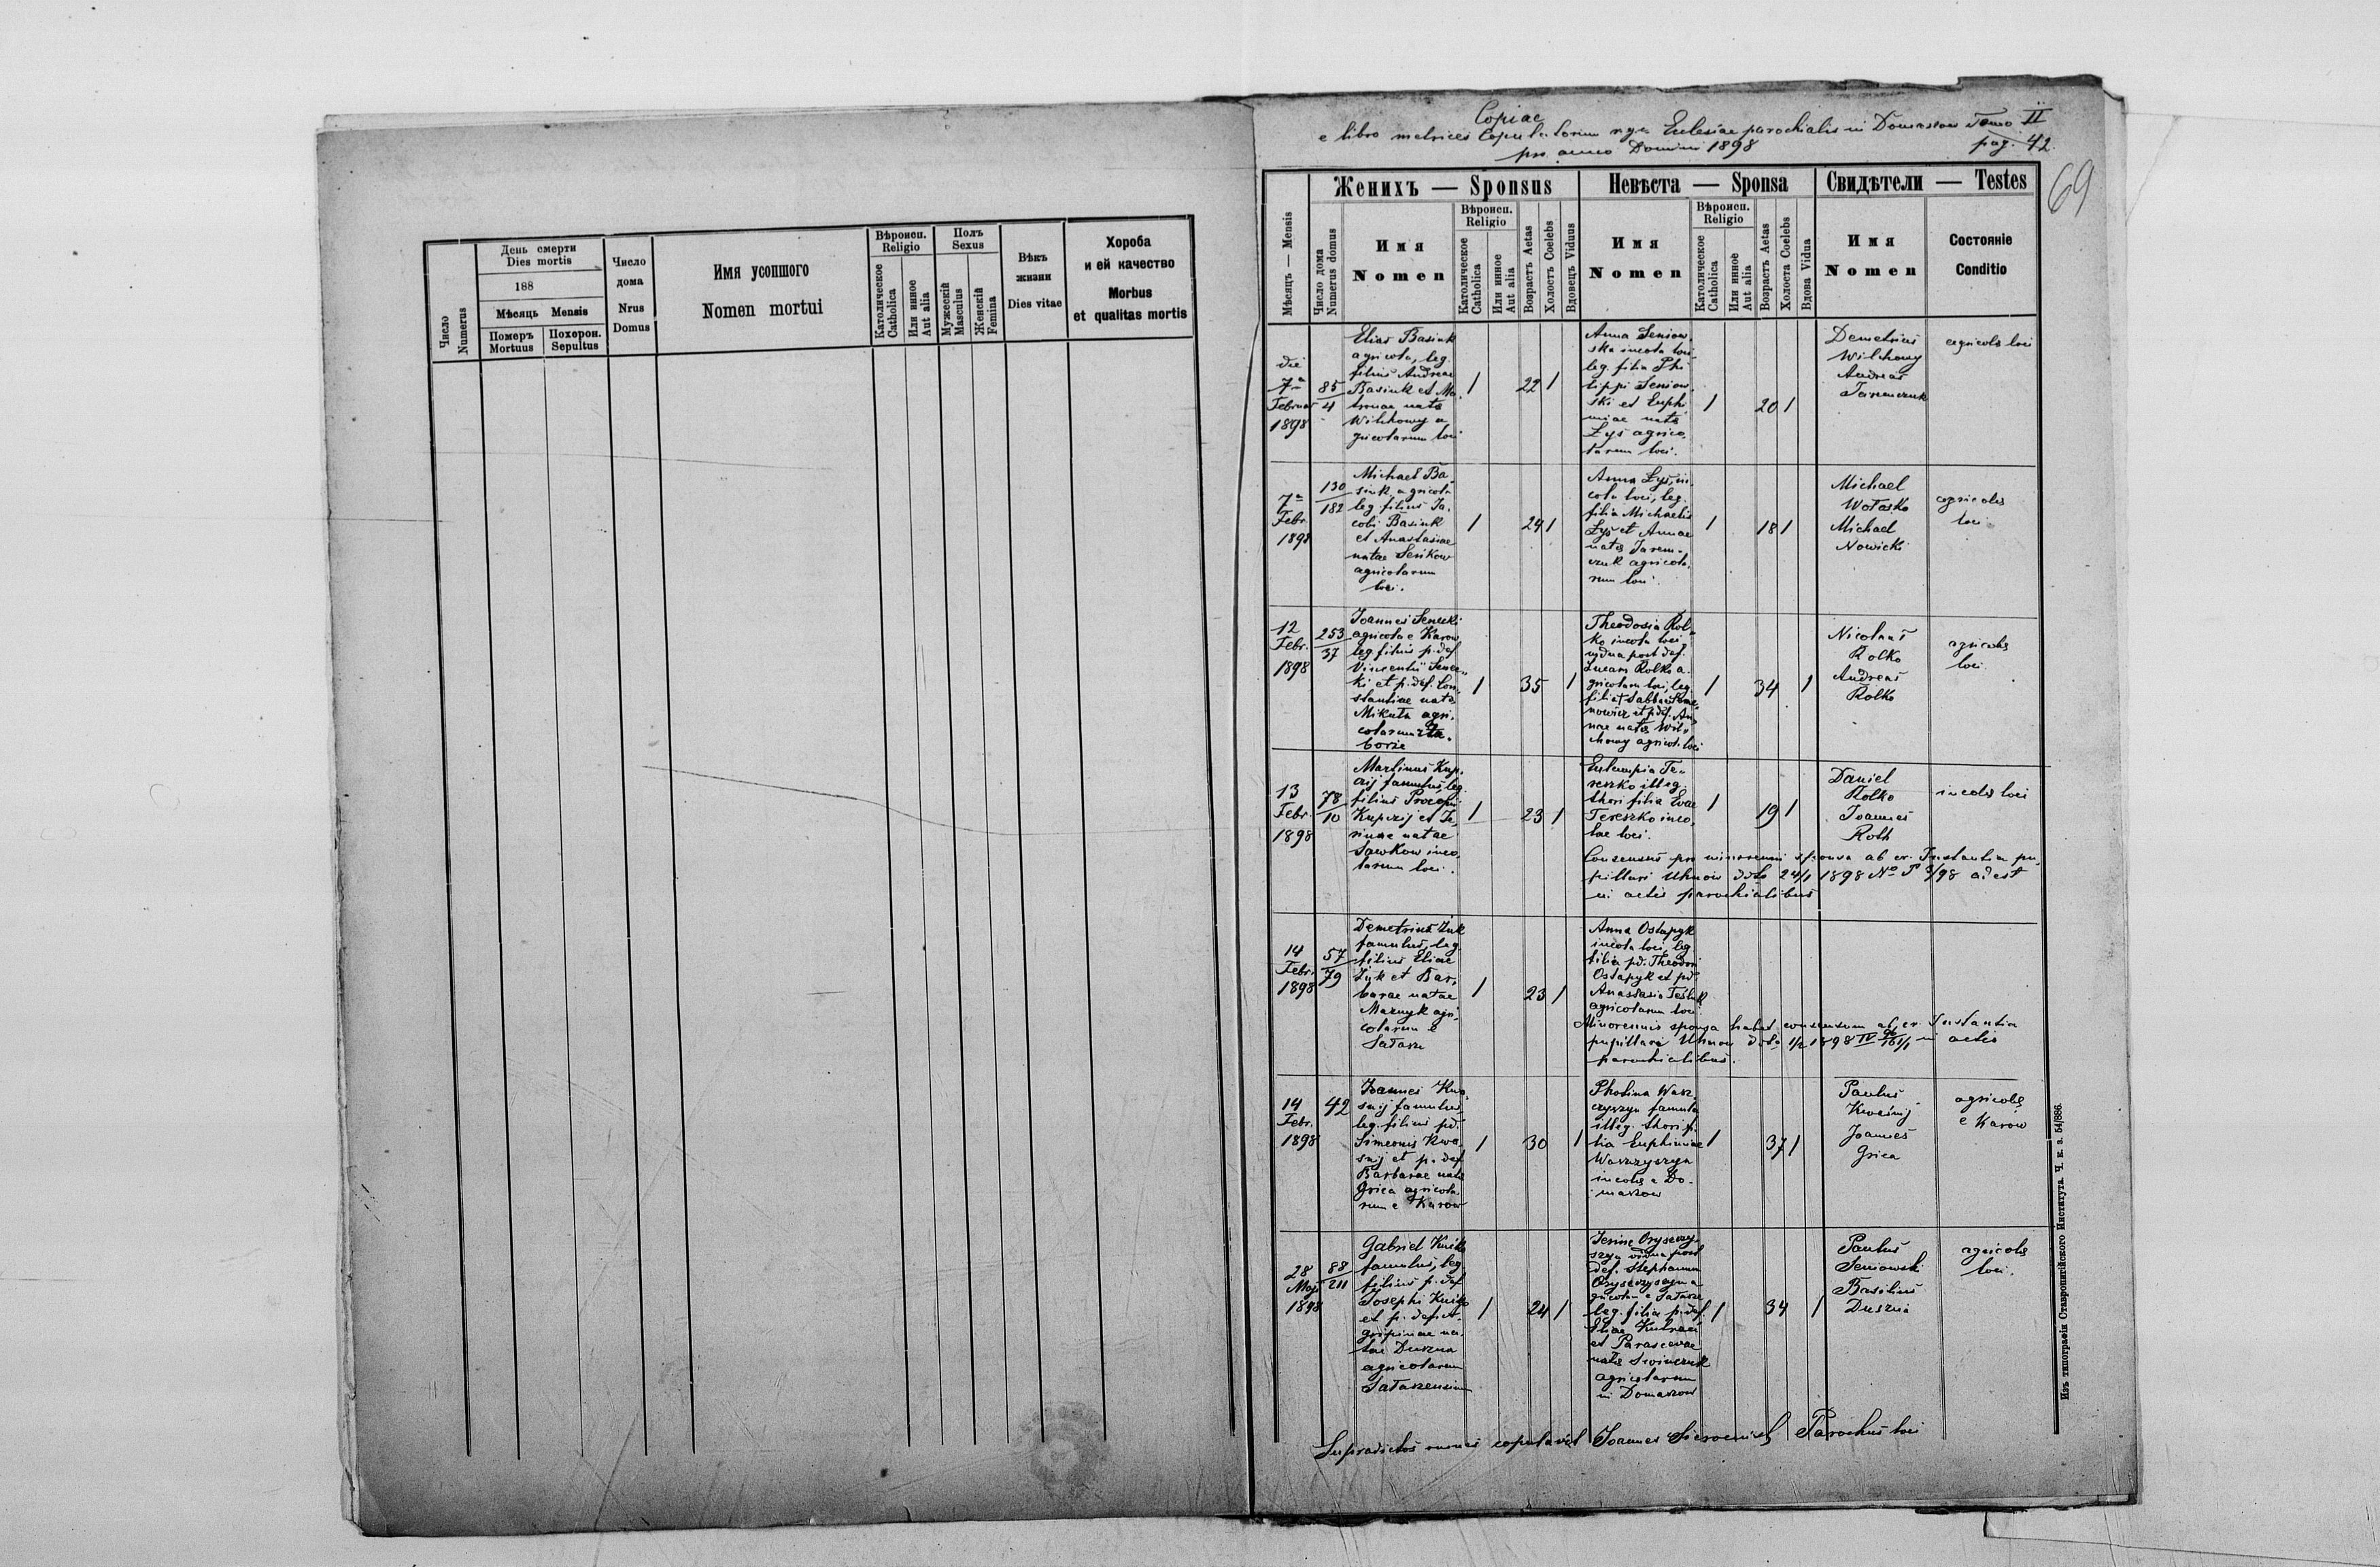 Число
Numerus
День смерти
Dies mortis
188
Мѣсяць Mensis
Померъ
Mortuus
Похорон.
Sepultus
Число
дома
Nrus
Domus
Имя усопшого
Nomen mortui
Вѣроисп.
Religio
Католическое
Catholica
Или инное
Aut alia
Полъ
Sexus
Мужескій
Masculus
Женскій
Femina
Вѣкъ
жизни
Dies vitae
Хороба
и ей качество
Morbus
et qualitas mortis
Copiae
e libro metrices Copulatorum Ecclesiae parochialis in Domaszow Tomo II
pro anno Domini 1898 pag. 42.
69
Мѣсяцъ — Mensis
Женихъ — Sponsus
Число дома
Numerus domus
Имя
Nomen
Вѣроисп.
Religio
Католическое
Catholica
Или инное
Aut alia
Возрастъ Aetas
Холостъ Coelebs
Вдовецъ Viduus
Невѣста — Sponsa
Имя
Nomen
Вѣроисп.
Religio
Католическое
Catholica
Или инное
Aut alia
Возрастъ Aetas
Холоста Coelebs
Вдова Vidua
Свидѣтели — Testes
Имя
Nomen
Состояніе
Conditio
die
7a
Februar
1898
85
4
Elias Basiuk
agricola, leg.
filius Andreae
Basiuk et Ma
tronae natae
Wilchowy a
gricolarum loci
1
22
1
Anna Seniow
ska incola loci
leg. filia Phi
lippi Seniow
ski et Euphi
miae natae
Łyś agrico
larum loci.
1
20
1
Demetrius
Wilchowy
Andreas
Jaremczuk
agricolae loci
7a
Febr.
1898
130
182
Michael Ba
siuk, agricola
leg. filius Ja
cobi Basiuk
et Anastasiae
natae Senkow
agricolarum
loci.
1
24
1
Anna Łyś, in
cola loci, leg.
filia Michaelis
Łyś et Annae
natae Jarem
czuk agricola
rum loci.
1
18
1
Michael
Wołosko
Michael
Nowicki
agricolae
loci
12
Febr.
1898
253
37
Joannes Senecki
agricola e Karow
leg. filius p. def.
Vincentii Senec
ki et p. def. Con
stantiae natae
Mikuła agri
colarum
borze
1
35
1
Theodosia Rol
ko incola loci
vidua post def.
Lucam Rolko a
gricolam loci, leg.
filia
nowicz et p. def. An
nae natae Wil
chowy agricol. loci
1
34
1
Nicolaus
Rolko
Andreas
Rolko
agricolae
loci
13
Febr.
1898
78
10
Martinus Kup
czij famulus, leg.
filius Procopii
Kupczij et Ir
rinae natae
Sawkow inco
larum loci.
1
23
1
Eulampia Te
reszko illeg.
thori filia Evae
Tereszko inco
lae loci.
1
19
1
Daniel
Rolko
Joannes
Roth
incolae loci
Consensus pro minorenni sponsa ab er. Instantia pu
pillari Uhnow ddto 24/1 1898 No P 3/98 adest
in actis parochialibus
14
Febr.
1898
57
79
Demetrius Żuk
famulus, leg.
filius Eliae
Żuk et Bar
barae natae
Mazuryk agri
colarum e
Sałasze
1
23
1
Anna Ostapyk
incola loci, leg.
filia pd. Theodori
Ostapyk et pd.
Anastasia Teśluk
agricolarum loci
Minorennis sponsa habet consensum ab er. Instantia
pupillari Uhnow ddto 1/2 1898 IV in actis
parochialibus.
14
Febr.
1898
42
Joannes Kwa
snij famulus
leg. filius pd.
Simeonis Kwa
snij et p. def.
Barbarae natae
Grica agricola
rum e Karow
1
30
1
Photina Wasz
czyszyn famula
illeg. thori fi
lia Euphimiae
Waszczyszyn
incolae e Do
maszow
1
37
1
Paulus
Kwaśnij
Joannes
Grica
agricolae
e Karow
28
Maj
1898
88
211
Gabriel Kuśko
famulus, leg.
filius p. def.
Josephi Kuśko
et p. def. A
gripinae na
tae Duszna
agricolarum
Sałaszensium
1
24
1
vidua post
def. Stephanum
leg. filia p. def.
Eliae
et Parascevae
natae
agricolarum
in Domaszow
1
34
1
Paulus
Seniowski
Basilius
Duszna
agricolae
loci.
Supradictos omnes copulavit Joannes Parochus loci
Изъ типографіи Ставропигійского Института. Ч. к. з. 54/886.